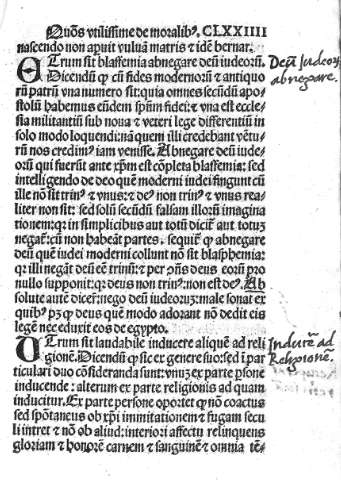 Quõs vtilissime de moralib⁹. CLXXIIII
nascendo non apuit vuluã matris ⁊ idẽ bernar.
UTrum sit blasfemia abnegare deũ iudeorũ.
Deũ Iudeoꝝ
abnegare.
Dicendũ ꝙ cũ fides modernorũ ⁊ antiquo
rũ patrũ vna numero sit: quia omnes secũdũ apo-
stolũ habemus eũdem spm̃ fidei: ⁊ vna est eccle-
sia militantiũ sub noua ⁊ veteri lege differentiũ in
solo modo loquendi: nã quem illi credebant vẽtu-
rũ nos credim⁹ iam venisse. Abnegare deũ iude-
orũ qui fuerũt ante xp̃m est cõpleta blasfemia: sed
intelligendo de deo quẽ moderni iudei fingunt cũ
ille nõ sit trin⁹ ⁊ vnus: ⁊ de⁹ non trin⁹ ⁊ vnus rea-
liter non sit: sed solũ secũdũ falsam illorũ imagina
tionem: qꝛ in simplicibus aut totũ dicit᷑ aut totuz
negat᷑: cũ non habeãt partes. sequit᷑ ꝙ abnegare
deũ quẽ iudei moderni collunt nõ sit blasphemia:
qꝛ illi negãt deũ eẽ trinũ: ⁊ per pñs deus eorũ pro
nullo supponit: qꝛ deus non trin⁹: non est de⁹. Ab
solute autẽ dicer᷑: nego deũ iudeoruz: male sonat ex
quib⁹ pꝫ ꝙ deus quẽ modo adorant nõ dedit eis
legẽ nec eduxit eos de egypto.
UTrum sit laudabile inducere aliquẽ ad reli
Inducere ad
Religionẽ.
gionẽ. Dicendũ ꝙ sic ex genere suo: sed ĩ par
ticulari duo cõsideranda sunt: vnuz ex parte psone
inducende: alterum ex parte religionis ad quam
inducitur. Ex parte persone oportet ꝙ nõ coactus
sed spõtaneus ob xp̃i immitationem ⁊ fugam secu
li intret ⁊ nõ ob aliud: interiori affectu relinquens
gloriam ⁊ honorẽ carnem ⁊ sanguinẽ ⁊ omnia tẽ-